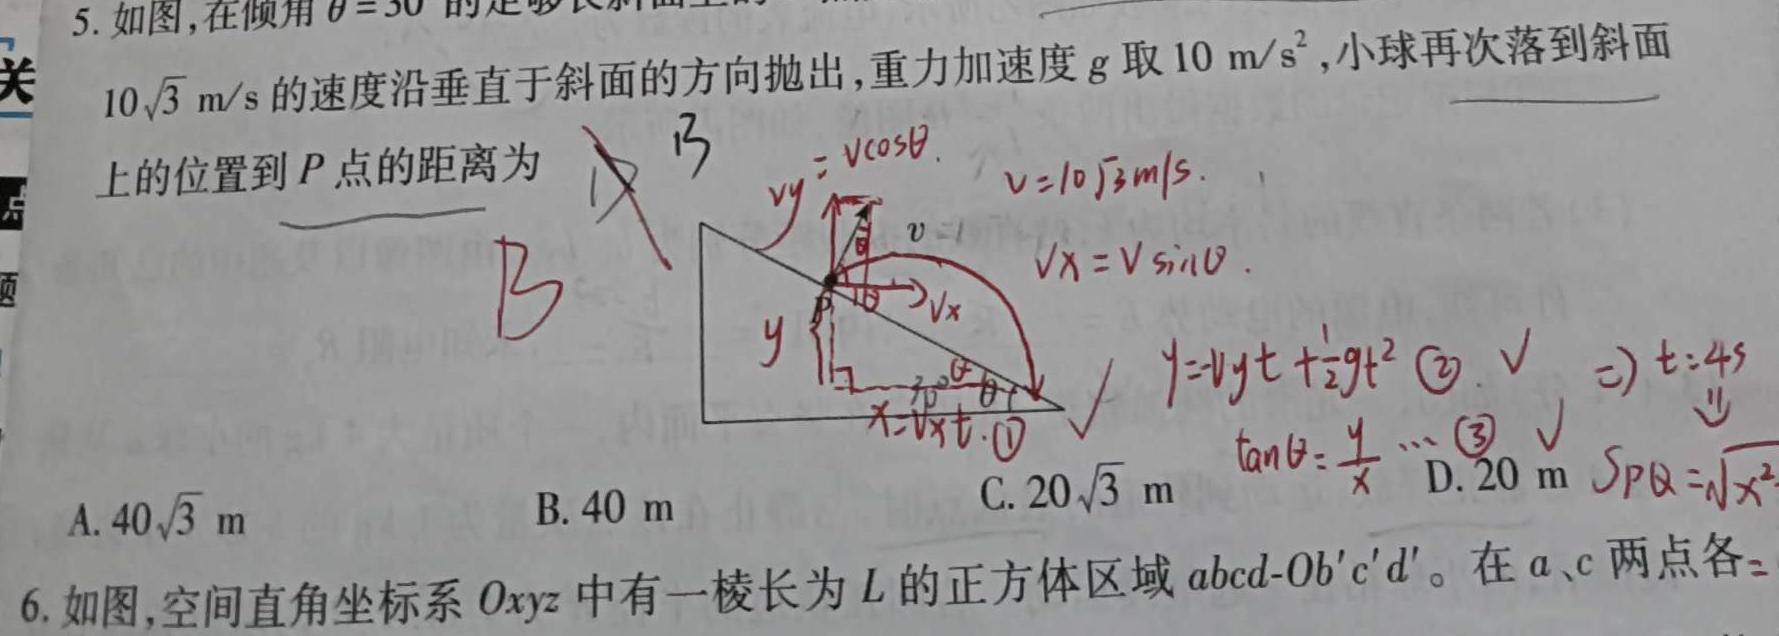 5. 如图,在倾角 θ=30°的足够长斜面上的
10√3 m/s 的速度沿垂直于斜面的方向抛出,重力加速度 g 取 10 m/s²,小球再次落到斜面
上的位置到 P 点的距离为
B
B
vy=vcosθ.
v=10√3m/s.
v
vx=vsinθ.
P
θ
vx
y
30°
θ
θ
x=vxt.①
y=-vyt+½gt² ②.√
⇒) t=4s
tanθ=y/x …③ √
SPQ=√x²
A. 40√3 m
B. 40 m
C. 20√3 m
D. 20 m
6. 如图,空间直角坐标系 Oxyz 中有一棱长为 L 的正方体区域 abcd-Ob′c′d′。在 a、c 两点各
关
题